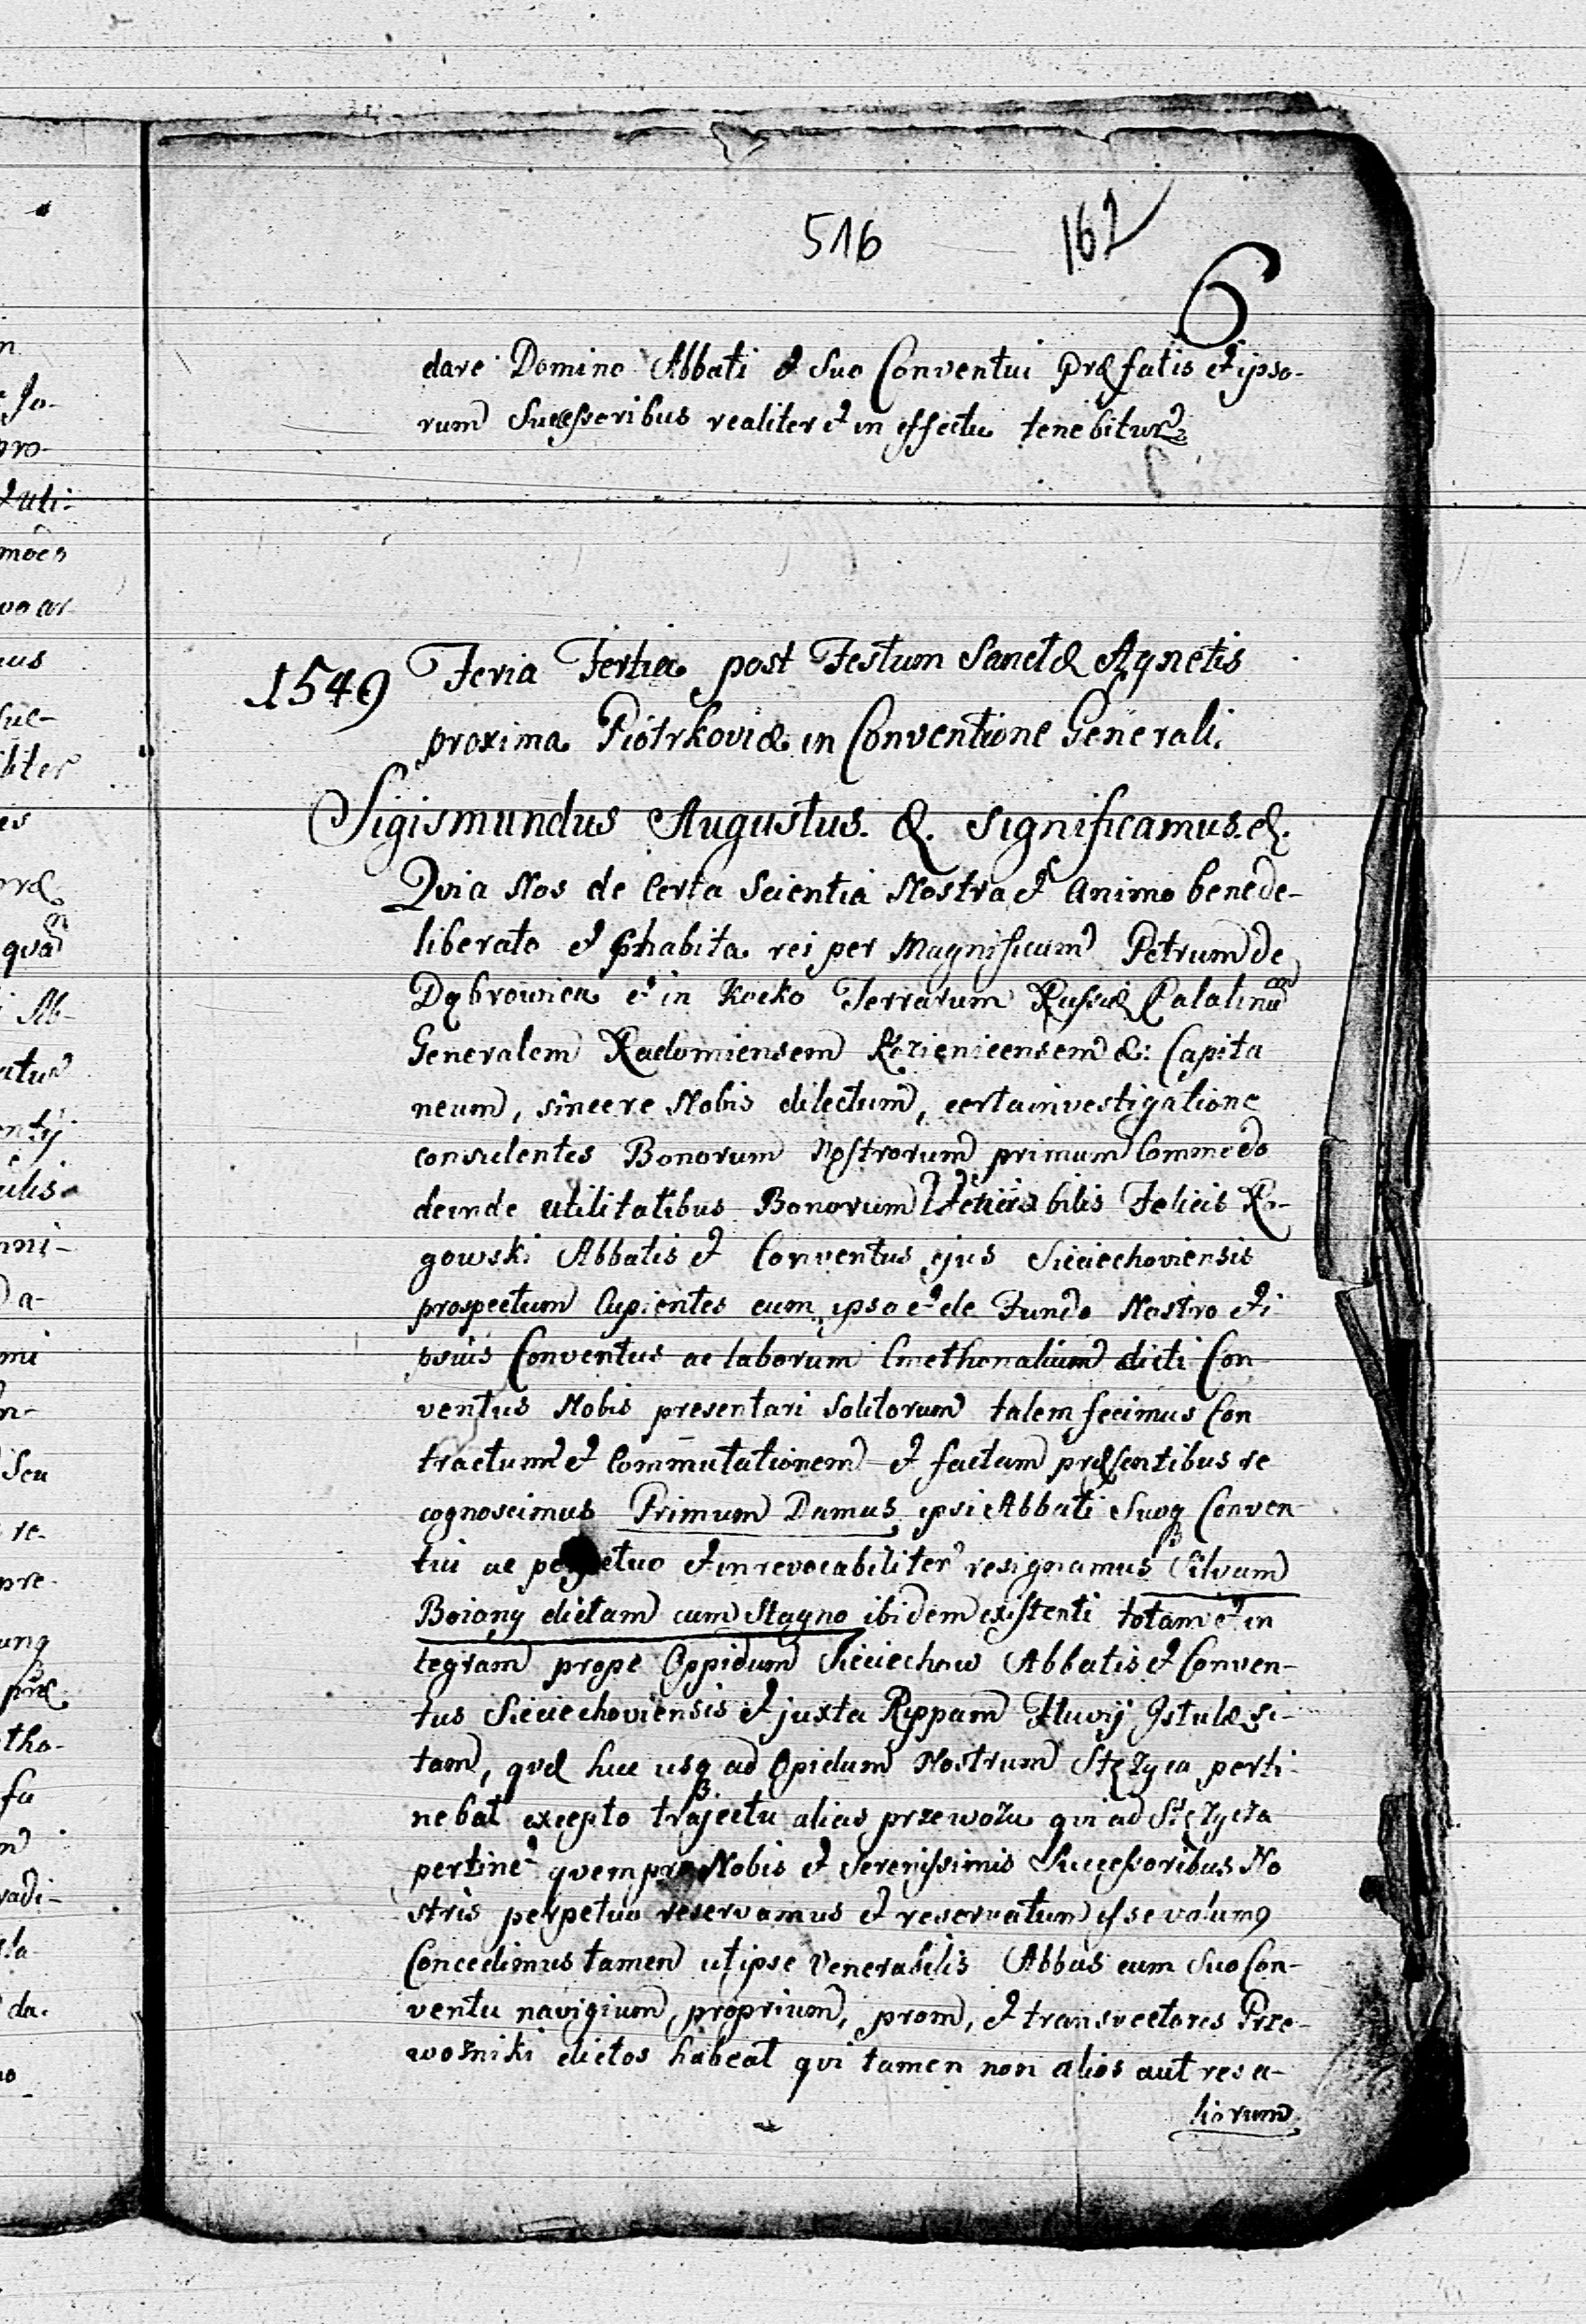 516
162
6
dare Domino Abbati & Suo Conventui Præfatis et ipso-
rum Successoribus realiter et in effectu tenebitur
1549 Feria Tertia post Festum Sanctæ Agnetis
proxima Piotrkoviæ in Conventione Generali.
Sigismundus Augustus. &. Significamus. &.
Quia Nos de Certa Scientia Nostra et animo bene de-
liberato et habita rei per Magnificum Petrum de
Dąbrowica et in Kocko Terrarum Russiæ Palatinum
Generalem Radomiensem Kozienicensem &: Capita
neum, sincere Nobis dilectum, certa investigatione
consulentes Bonorum Nostrorum primum Commodo
deinde utilitatibus Bonorum Venerabilis Felicis Ro-
gowski Abbatis et Conventus ejus Sieciechoviensis
prospectum Cupientes cum ipso et de Fundo Nostro et i
psius Conventus ac laborum Cmethonalium dicti Con
ventus Nobis presentari Solitorum talem fecimus Con
tractum et Commutationem et factam præsentibus re
cognoscimus Primum Damus ipsi Abbati Suoq Conven-
tui ac perpetuo et inrevocabiliter resignamus Silvam
Boiany dictam cum Stagno ibidem existenti totam et in
tegram prope Oppidum Sieciechow Abbatis et Conven-
tus Sieciechoviensis et juxta Rippam Fluvij Istulæ si-
tam, quæ huc usq ad Opidum Nostrum Stęzyca perti-
nebat excepto trajectu alias przewozu qui ad Stęzycza
pertinet quem pro Nobis et Serenissimis Successoribus No
stris perpetuo reservamus et reservatum esse volumq
Concedimus tamen ut ipse Venerabilis Abbas cum Suo Con-
ventu navigium, proprium, prom, et transvectores Prze-
woźniki dictos habeat qui tamen non alios aut res a-
liorum